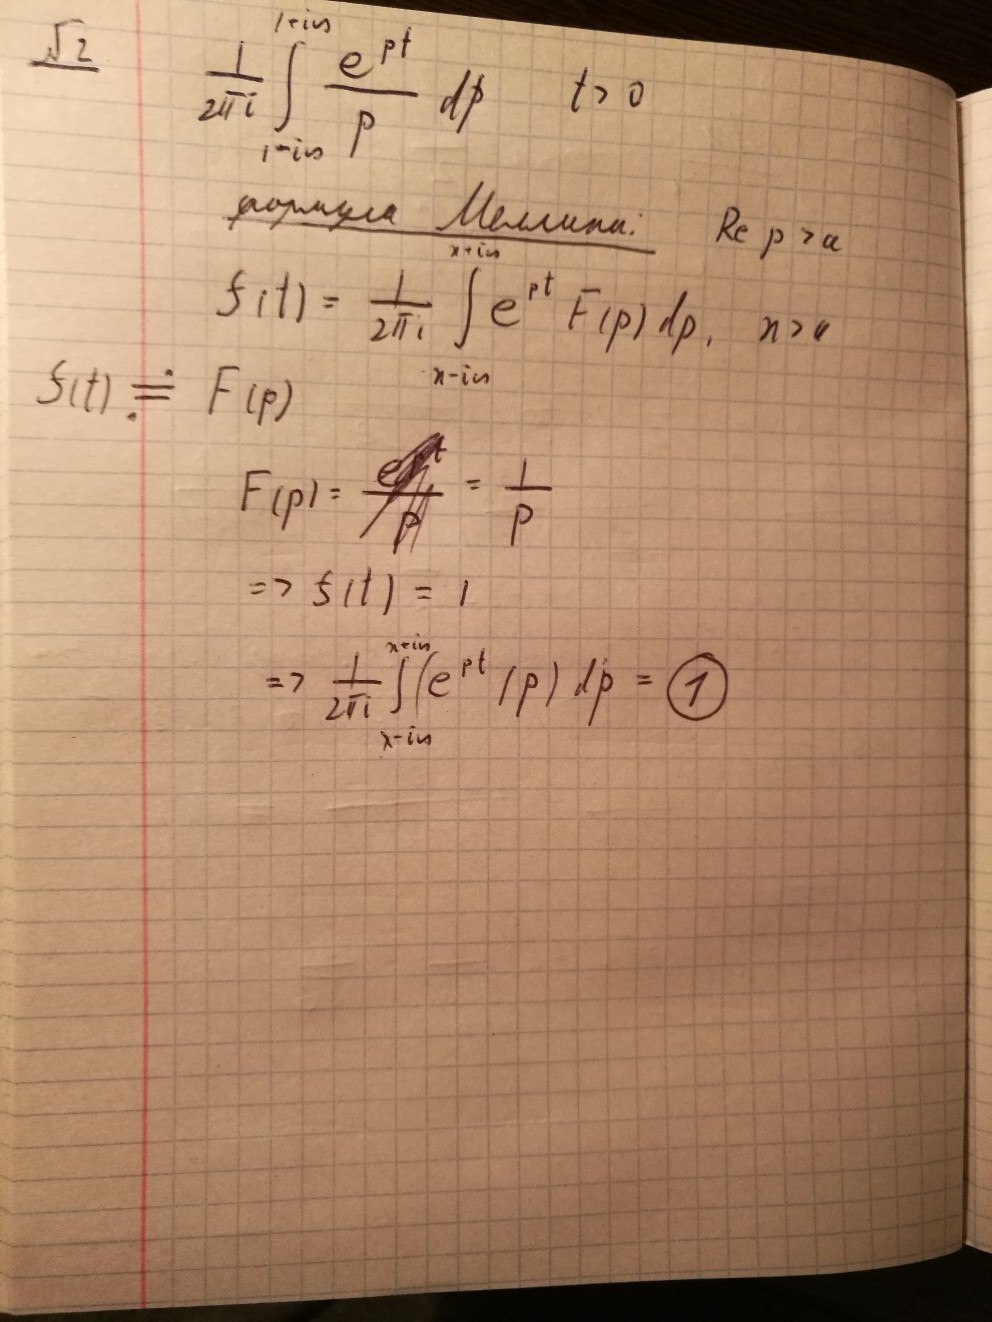 √2 1/2πi ∫_{1-i∞}^{1+i∞} e^{pt}/p dp t > 0
формула Меллина: Re p > a
f(t) = 1/2πi ∫_{x-i∞}^{x+i∞} e^{pt} F(p) dp, x > a
f(t) ≓ F(p)
F(p) = = 1/p
=> f(t) = 1
=> 1/2πi ∫_{x-i∞}^{x+i∞} (e^{pt} (p) dp = 1